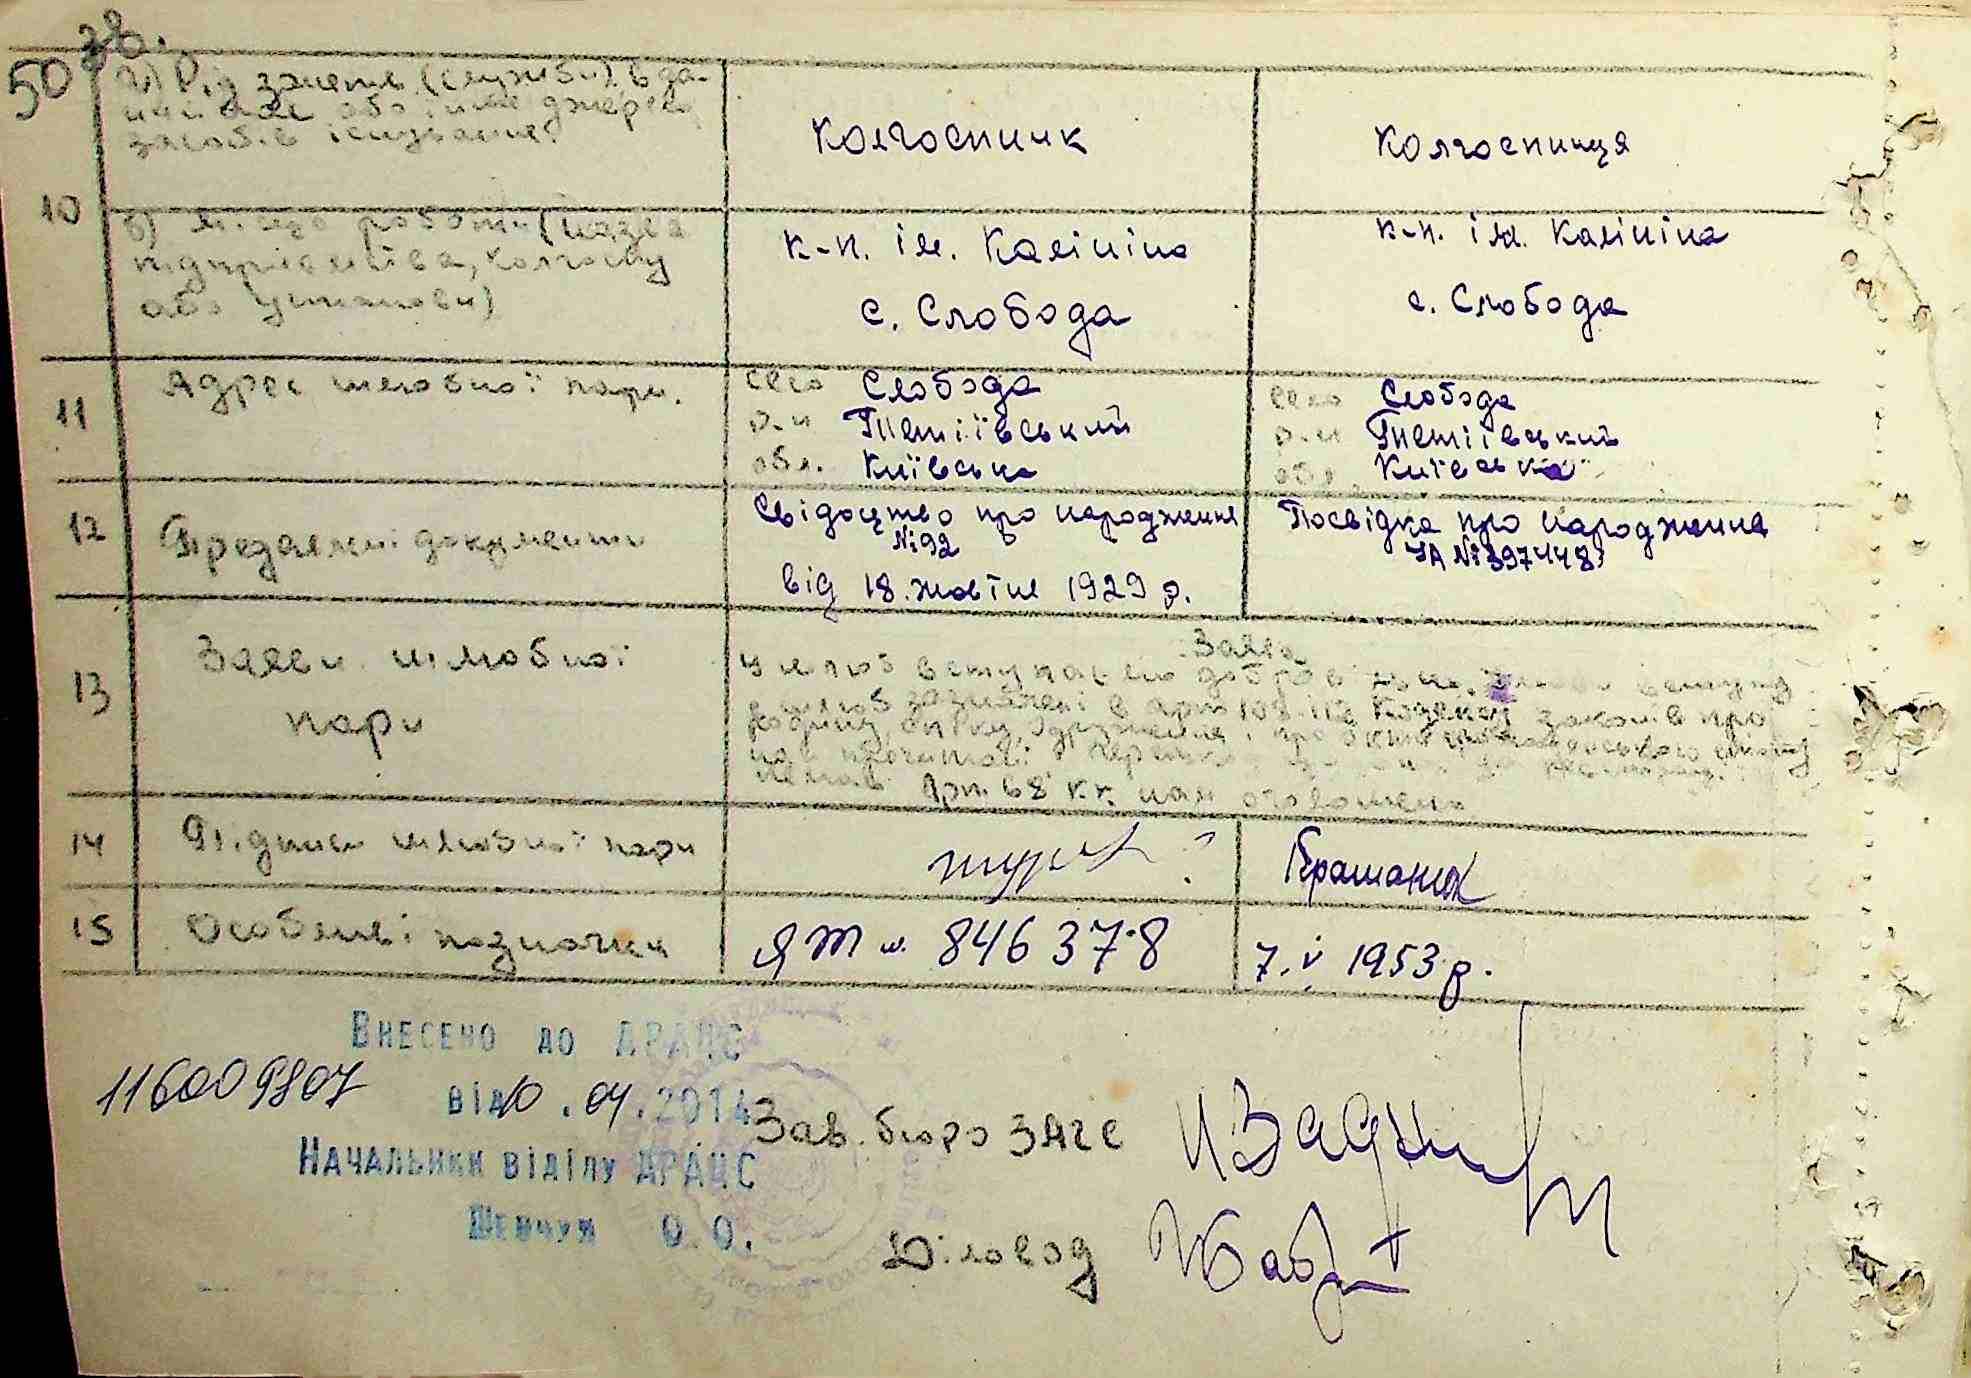 50 зв.
а) Рід занять (служби) в да-
ний час або інше джерело
засобів існування.
Колгоспник
Колгоспниця
10
б) Місце роботи (назва
підприємства, колгоспу
або установи)
к-п. ім. Калініна
с. Слобода
к-п. ім. Калініна
с. Слобода
11
Адрес шлюбної пари.
село Слобода
р-н Тетіївський
обл. Київська
село Слобода
р-н Тетіївський
обл. Київська
12
Предявлені документи
Свідоцтво про народження
№ 92
від 18. жовтня 1929 р.
Посвідка про народження
УА № 397448
13
Заяви шлюбної
пари
Заява
У шлюб вступаємо добровільно. вступу
в шлюб зазначені в арт. Кодексу законів про
родину, опіку, одруження і про акти громадянського стану
нам прочитані
немає Арт. 68 К.К. нам оголошено
14
Підписи шлюбної пари
15
Особливі позначки
ЯЖ № 846378
7. V 1953 р.
Внесено до ДРАЦС
від 10.04.2014
Начальник відділу ДРАЦС
Шевчук О.О.
Зав. бюро ЗАГС
Діловод